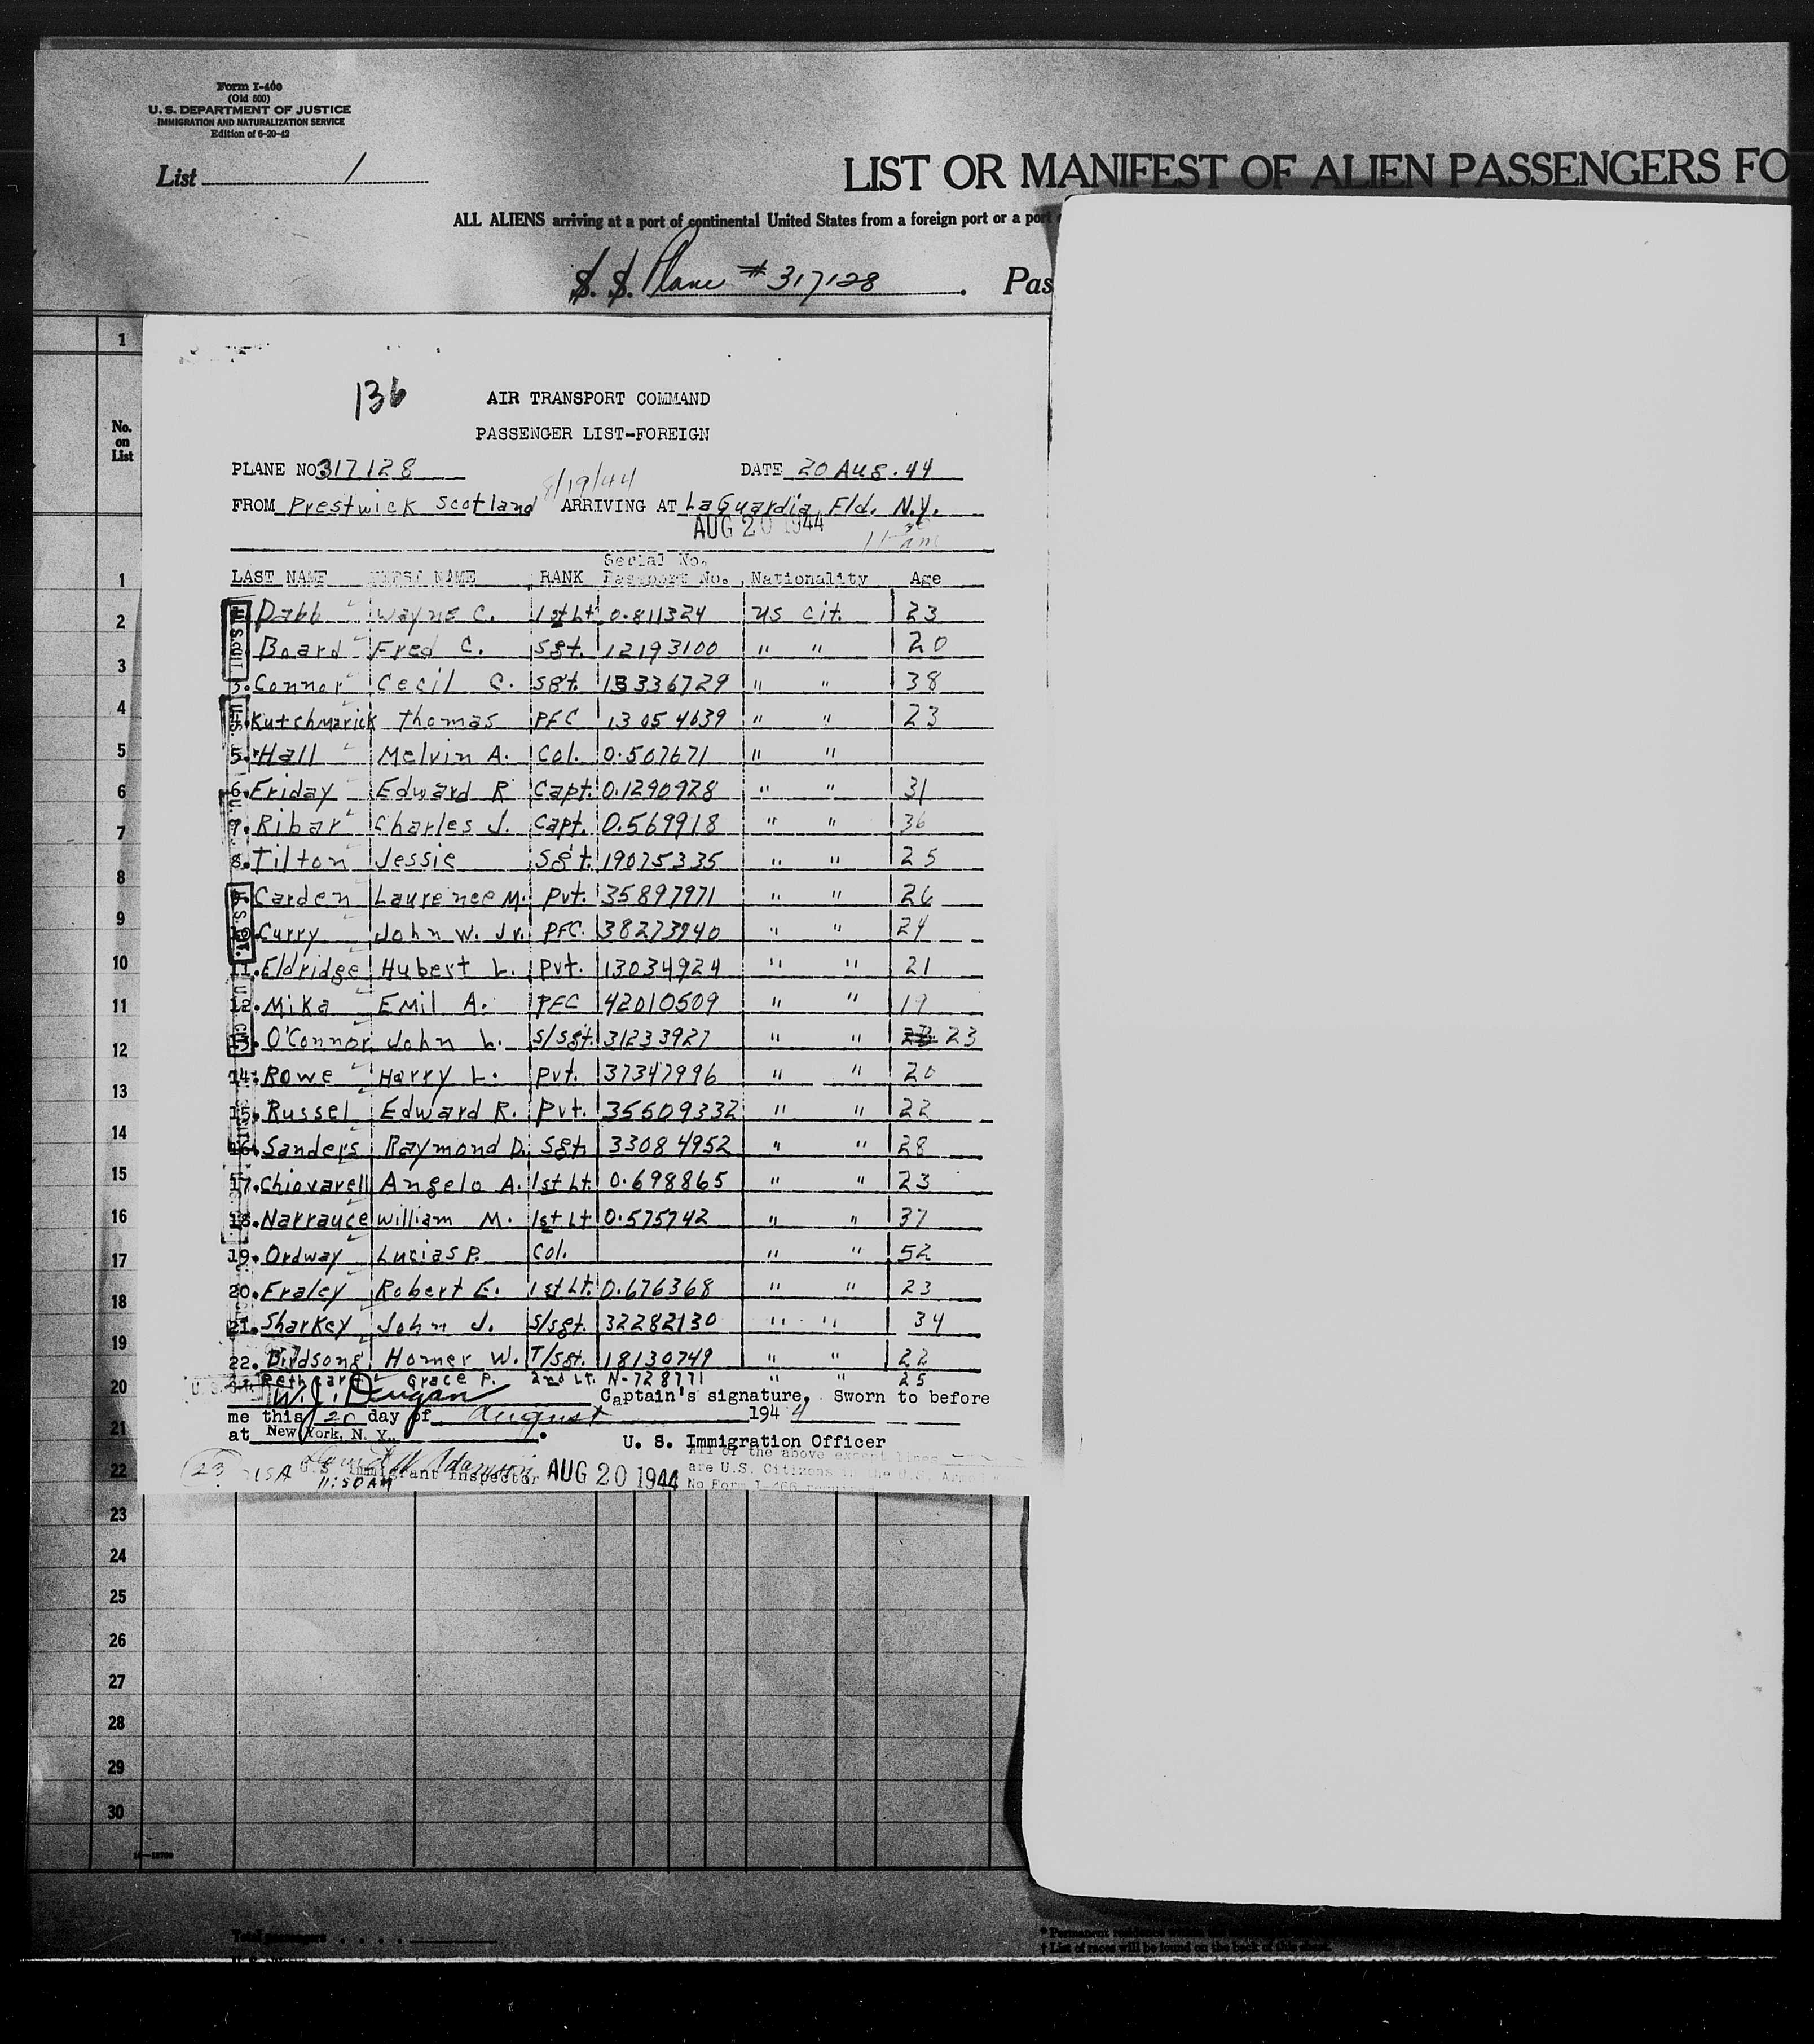 Form I-400
(Old 500)
U. S. DEPARTMENT OF JUSTICE
IMMIGRATION AND NATURALIZATION SERVICE
Edition of 6-20-42
List 1
LIST OR MANIFEST OF ALIEN PASSENGERS FO
ALL ALIENS arriving at a port of continental United States from a foreign port or a port
S. S. Plane # 317128 . Pas
136
AIR TRANSPORT COMMAND
PASSENGER LIST-FOREIGN
PLANE NO 317128 DATE 20 Aug. 44
8/19/44
FROM Prestwick Scotland ARRIVING AT LaGuardia Fld. N.Y.
AUG 20 1944 11 30 am
LAST NAME FIRST NAME RANK Serial No. Passport No. Nationality Age
Dabb Wayne C. 1st Lt 0.811324 US cit. 23
Board Fred C. Sgt. 12193100 " " 20
3. Connor Cecil C. Sgt. 13336729 " " 38
4. Kutchmarick Thomas PFC 13054639 " " 23
5. Hall Melvin A. Col. 0.507671 " "
6. Friday Edward R Capt. 0.1290928 " " 31
7. Ribar Charles J. Capt. 0.569918 " " 36
8. Tilton Jessie Sgt. 19075335 " " 25
9. Carden Laurence M. Pvt. 35897971 " " 26
10. Curry John W. Jr. PFC. 38273940 " " 24
11. Eldridge Hubert L. Pvt. 13034924 " " 21
12. Mika Emil A. PFC 42010509 " " 19
13. O'Connor John L. S/Sgt. 31233927 " " 23
14. Rowe Harry L. Pvt. 37347996 " " 20
15. Russel Edward R. Pvt. 35509332 " " 22
16. Sanders Raymond D. Sgt. 33084952 " " 28
17. Chiovarell Angelo A. 1st Lt. 0.698865 " " 23
18. Narrauce William M. 1st Lt 0.575742 " " 37
19. Ordway Lucias P. Col. " " 52
20. Fraley Robert E. 1st Lt. 0.676368 " " 23
21. Sharkey John J. S/Sgt. 32282130 " " 34
22. Birdsong Homer W. T/Sgt. 18130749 " " 22
Grace P. 2nd Lt. N-728771 " " 25
W. J. Dugan Captain's signature, Sworn to before
me this 20 day of August 1944
at New York, N. Y. .
U. S. Immigration Officer
All of the above except lines
are U.S. Citizens in the U.S.
No Form I-466
23 USA U.S. Immigrant Inspector AUG 20 1944
11:50 AM
No.
on
List
1
1
2
3
4
5
6
7
8
9
10
11
12
13
14
15
16
17
18
19
20
21
22
23
24
25
26
27
28
29
30
Total passengers
* Permanent residence
† List of races will be found on the back of this sheet.